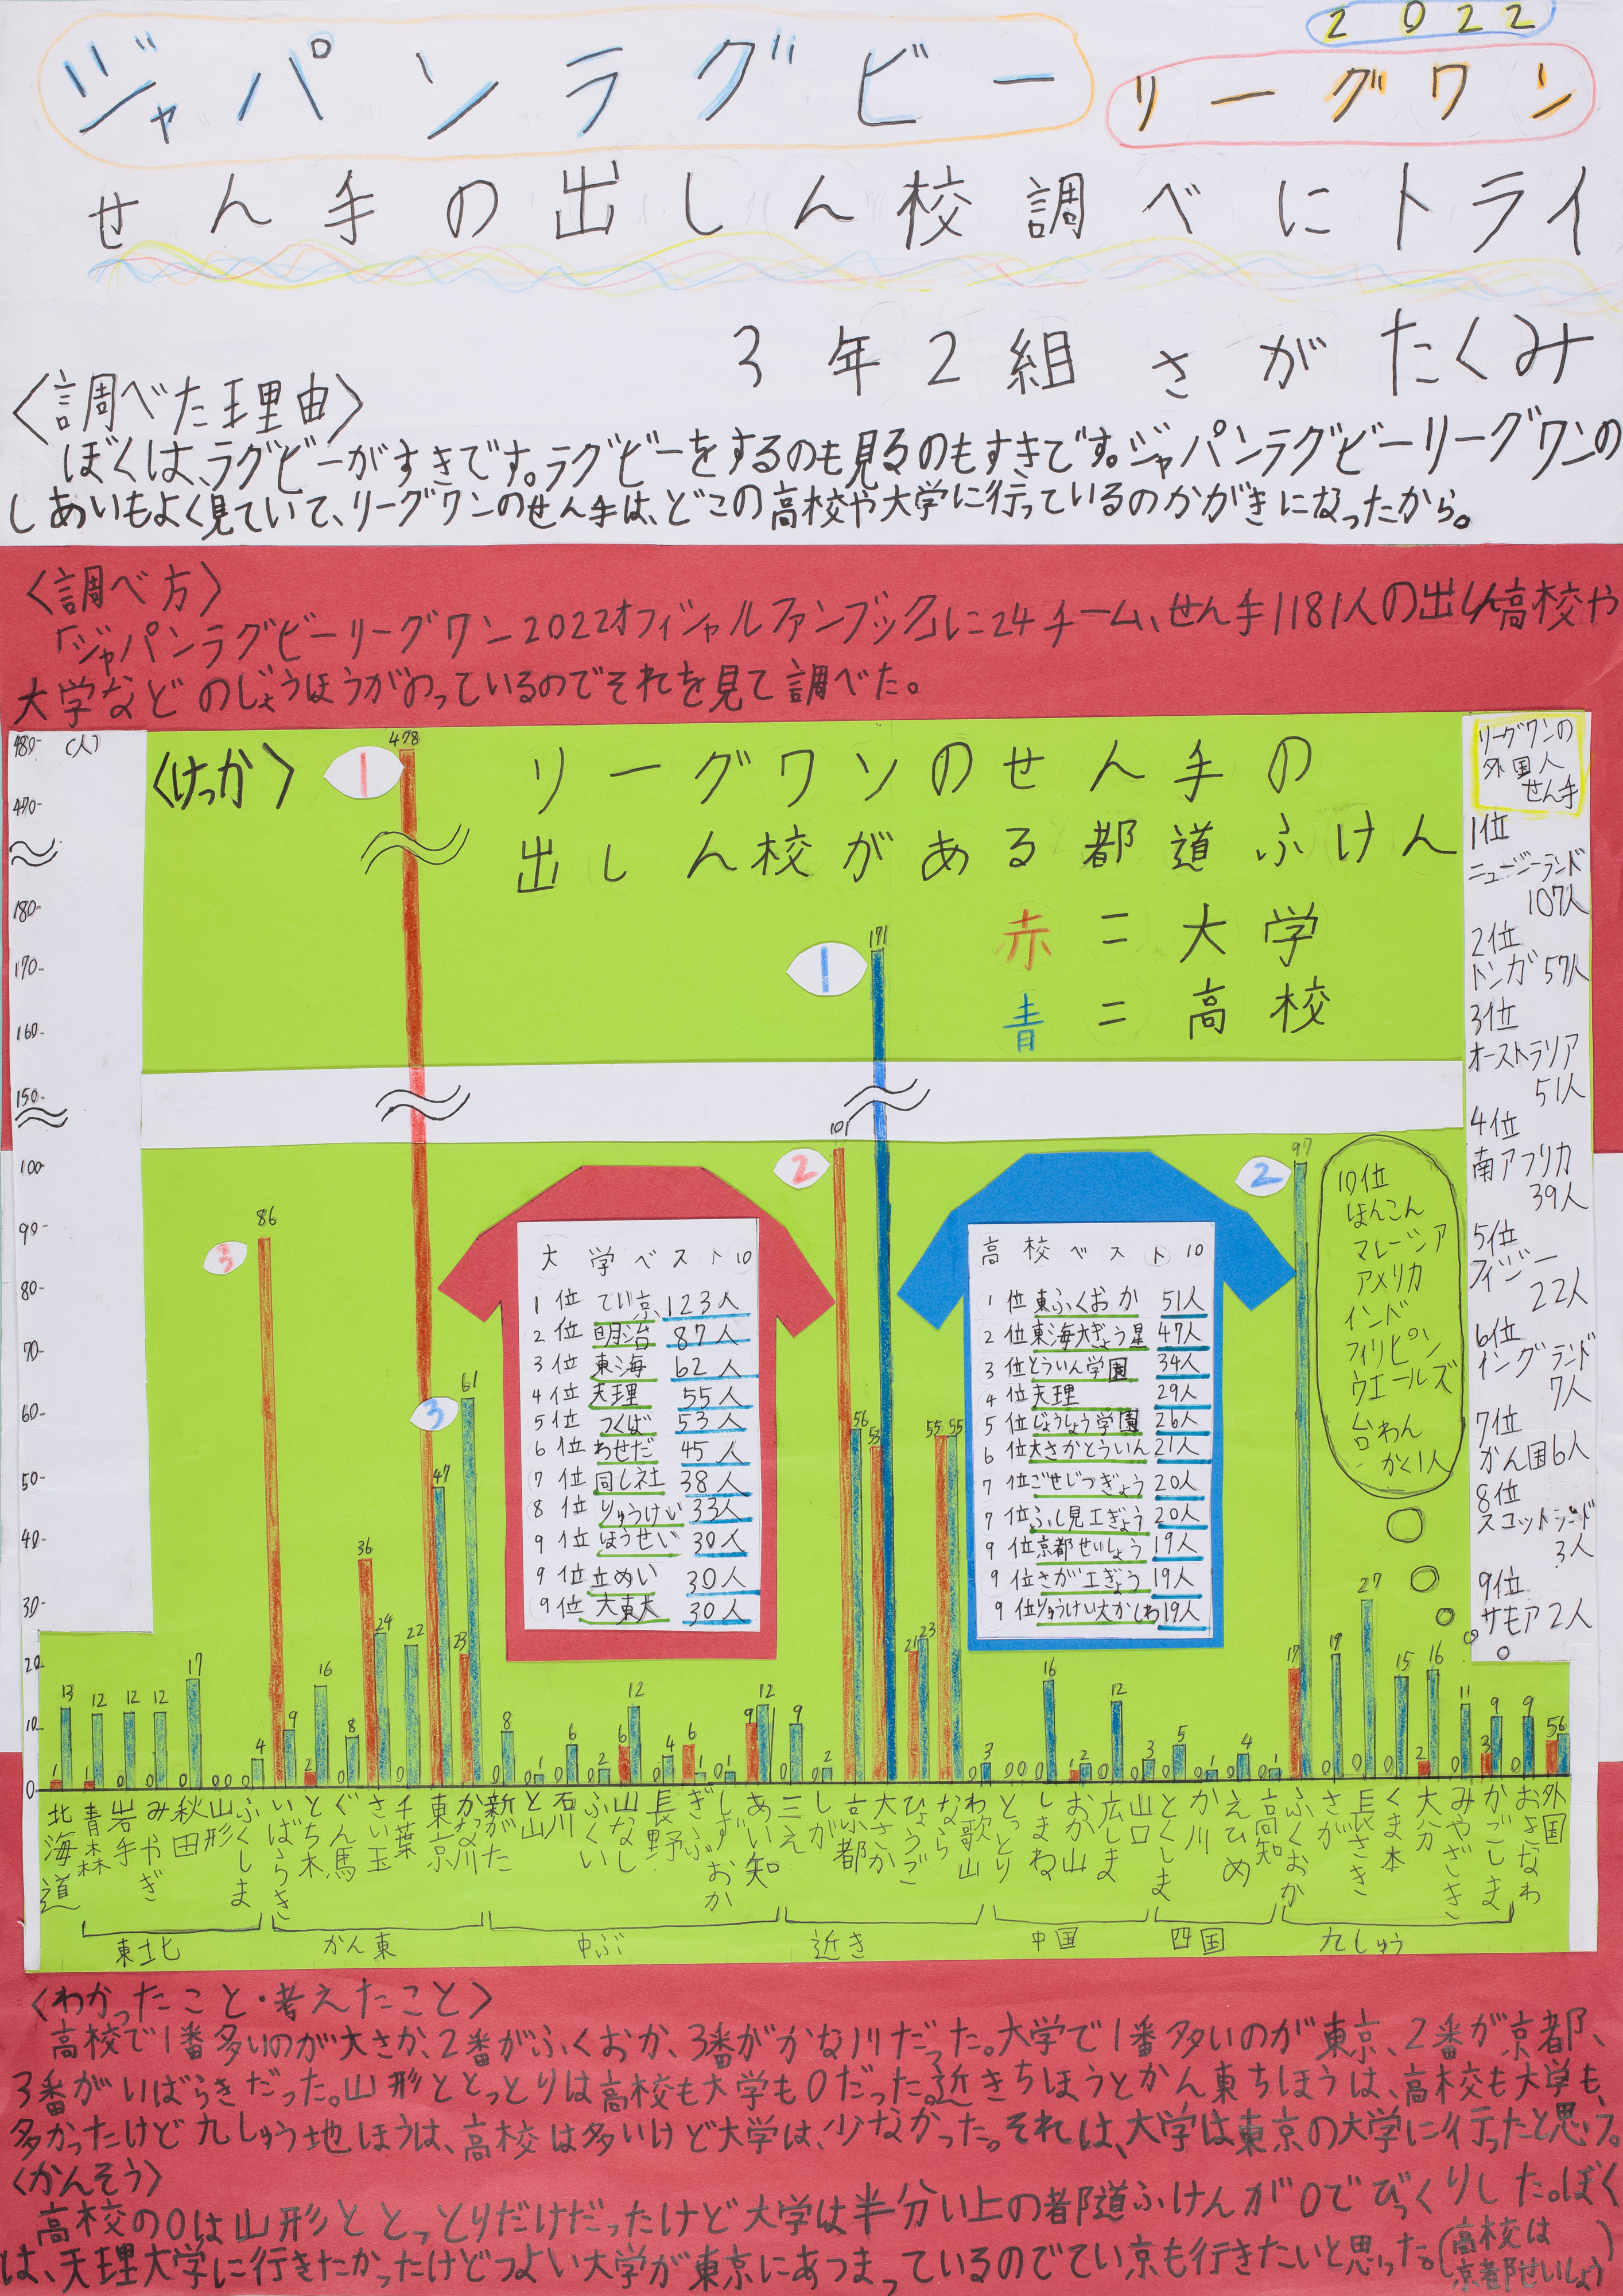 2022
ジャパンラグビー リーグワン
せん手の出しん校調べにトライ
3年2組 さが たくみ
〈調べた理由〉
ぼくは、ラグビーがすきです。ラグビーをするのも見るのもすきです。ジャパンラグビーリーグワンの
しあいもよく見ていて、リーグワンのせん手は、どこの高校や大学に行っているのかがきになったから。
〈調べ方〉
「ジャパンラグビーリーグワン2022オフィシャルファンブック」に24チーム、せん手1181人の出しん高校や
大学などのじょうほうがのっているのでそれを見て調べた。
〈けっか〉
リーグワンのせん手の
出しん校がある都道ふけん
赤=大学
青=高校
480 (人)
470
180
170
160
150
100
90
80
70
60
50
40
30
20
10
0
1 478
1 171
2 101
2 97
3 86
3 61
大学ベスト10
1位 てい京 123人
2位 明治 87人
3位 東海 62人
4位 天理 55人
5位 つくば 53人
6位 わせだ 45人
7位 同し社 38人
8位 りゅうけい 33人
9位 ほうせい 30人
9位 立めい 30人
9位 大東大 30人
高校ベスト10
1位 東ふくおか 51人
2位 東海大ぎょう星 47人
3位 とういん学園 34人
4位 天理 29人
5位 じょうしょう学園 26人
6位 大さかとういん 21人
7位 ごせじつぎょう 20人
7位 ふし見工ぎょう 20人
9位 京都せいしょう 19人
9位 さが工ぎょう 19人
9位 りゅうけい大かしわ 19人
リーグワンの
外国人
せん手
1位
ニュージーランド
107人
2位
トンガ 57人
3位
オーストラリア
51人
4位
南アフリカ
39人
5位
フィジー
22人
6位
イングランド
7人
7位
かん国6人
8位
スコットランド
3人
9位
サモア 2人
10位
ほんこん
マレーシア
アメリカ
インド
フィリピン
ウエールズ
台わん
かく1人
1 13 1 12 0 12 0 12 0 17 0 0 0 4 86 9 2 16 0 8 36 24 0 22 478 47 23 61 0 8 0 1 0 6 0 2 6 12 0 4 6 1 0 1 9 12 0 9 0 2 101 56 53 171 21 23 55 55 0 3 0 0 0 16 1 2 0 12 0 3 0 5 0 1 0 4 0 1 17 97 0 19 0 27 0 15 2 16 0 11 3 9 0 9 5 6
北海道 青森 岩手 みやぎ 秋田 山形 ふくしま いばらき とち木 ぐん馬 さい玉 千葉 東京 かな川 新がた と山 石川 ふくい 山なし 長野 ぎふ しずおか あい知 三え しが 京都 大さか ひょうご なら わ歌山 とっとり しまね おか山 広しま 山口 とくしま か川 えひめ 高知 ふくおか さが 長さき くま本 大分 みやざき かごしま おきなわ 外国
東北 かん東 中ぶ 近き 中国 四国 九しゅう
〈わかったこと・考えたこと〉
高校で1番多いのが大さか、2番がふくおか、3番がかな川だった。大学で1番多いのが東京、2番が京都、
3番がいばらきだった。山形ととっとりは高校も大学も0だった。近きちほうとかん東ちほうは、高校も大学も、
多かったけど九しゅう地ほうは、高校は多いけど大学は、少なかった。それは、大学は東京の大学に行ったと思う。
〈かんそう〉
高校の0は山形ととっとりだけだったけど大学は半分い上の都道ふけんが0でびっくりした。ぼく
は、天理大学に行きたかったけどつよい大学が東京にあつまっているのでてい京も行きたいと思った。(高校は
京都せいしょう)